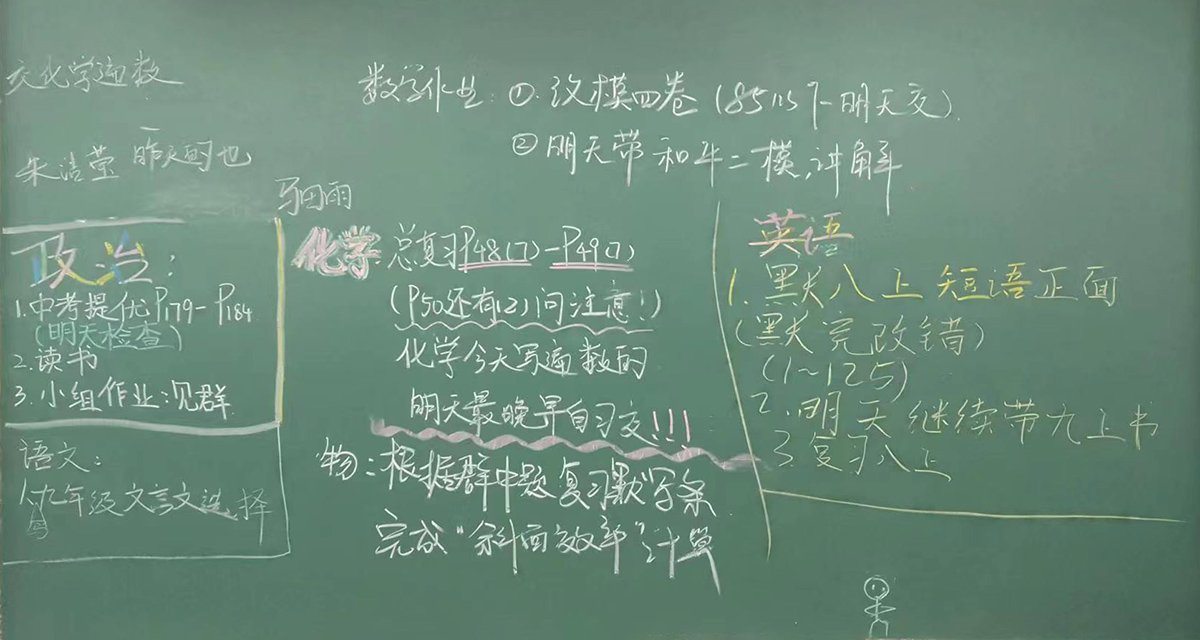 交化学遍数
朱浩莹 昨天的也
马田雨
数学作业: ①. 模四卷 (85115下-明天交)
②明天带和平二模,讲解
政治:
1.中考提优P179-P184
(明天检查)
2.读书
3.小组作业:见群
语文:
九年级文言文选择
写
化学 总复习P48(7)-P49(7)
(P50还有(2)问注意!)
化学今天写遍数的
明天最晚早自习交!!!
物:根据群中题复习默写条
完成"斜面效率"计算
英语
1.默八上短语正面
(默完改错)
(1~125)
2.明天继续带九上书
3.复习八上